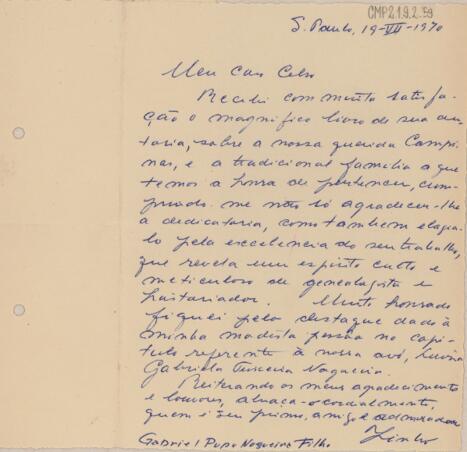 CMP2.1.9.2.59
S. Paulo, 19-VII-1970
Meu caro Celso
Recebi com muita satisfa-
ção o magnifico livro de sua au-
toria, sobre a nossa querida Campi-
nas, e a tradicional familia a que
temos a honra de pertencer, cum-
prindo-me não só agradecer-lhe
a dedicatoria, como tambem elogia-
lo pela excelencia do seu trabalho,
que revela um espirito culto e
meticuloso de genealogista e
historiador. Muito honrado
fiquei pelo destaque dado à
minha modesta pessôa no capi-
tulo referente à nossa avó,
Gabriela Teixeira Nogueira.
Reiterando os meus agradecimentos
e louvores, abraça-o cordialmente,
quem é seu primo, amigo e admirador
Zinho
Gabriel Pupo Nogueira Filho